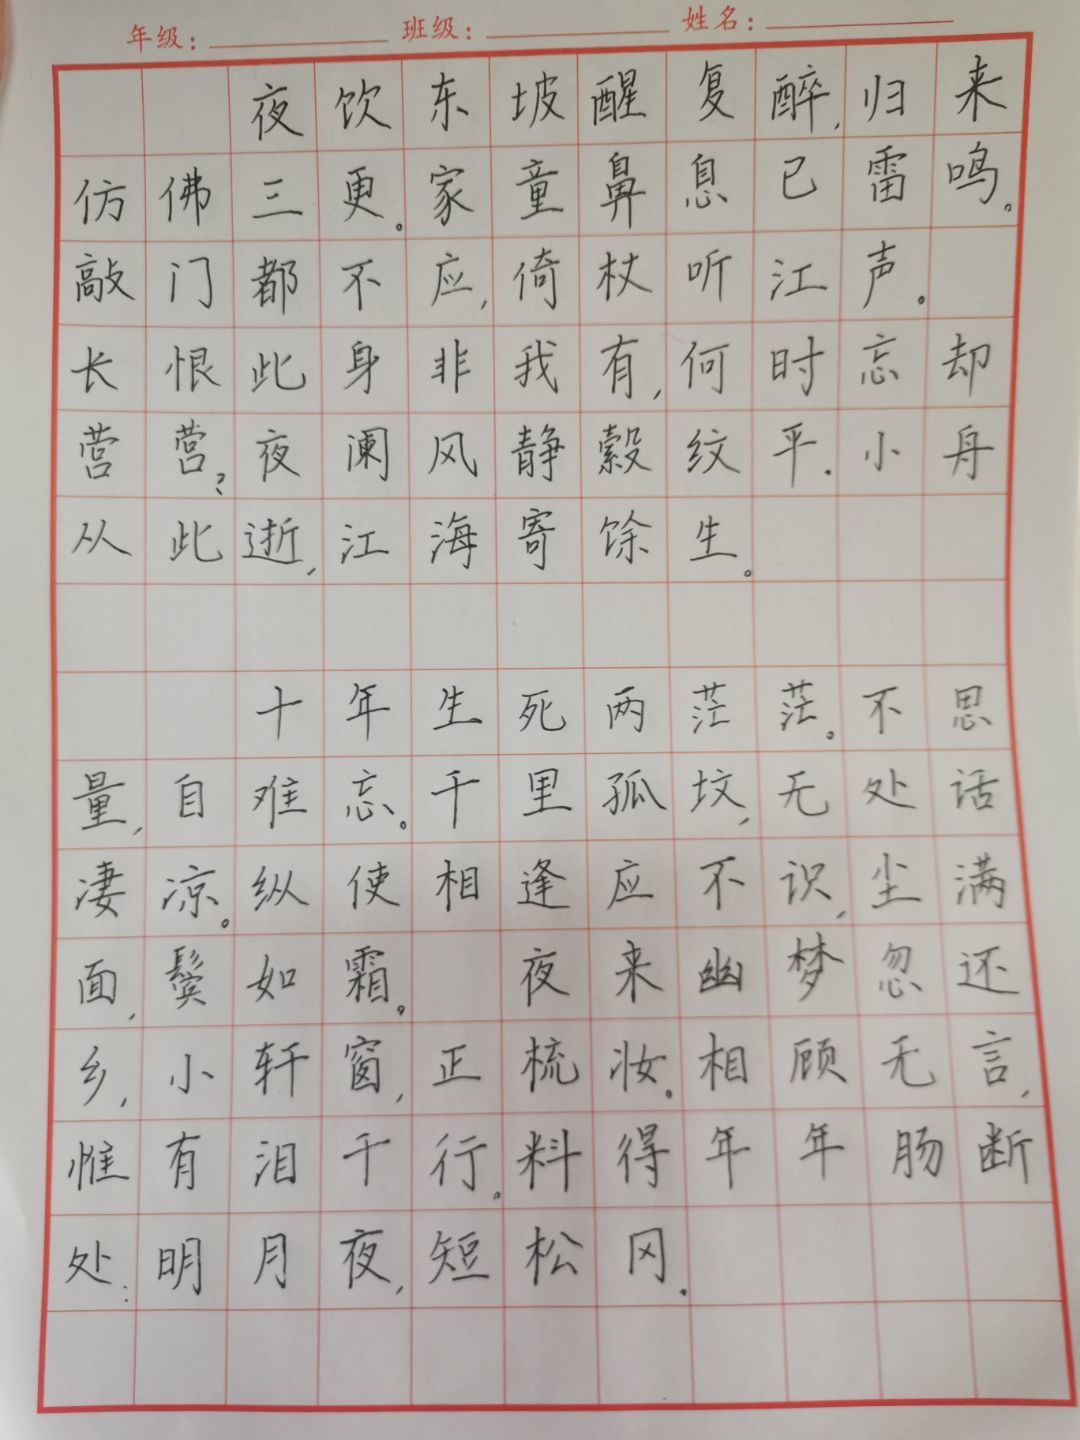 年级： 班级： 姓名：
夜饮东坡醒复醉,归来
仿佛三更。家童鼻息已雷鸣。
敲门都不应,倚杖听江声。
长恨此身非我有,何时忘却
营营?夜阑风静縠纹平.小舟
从此逝,江海寄馀生。
十年生死两茫茫。不思
量,自难忘。千里孤坟,无处话
凄凉。纵使相逢应不识,尘满
面,鬓如霜。 夜来幽梦忽还
乡,小轩窗,正梳妆。相顾无言,
惟有泪千行。料得年年肠断
处:明月夜,短松冈.